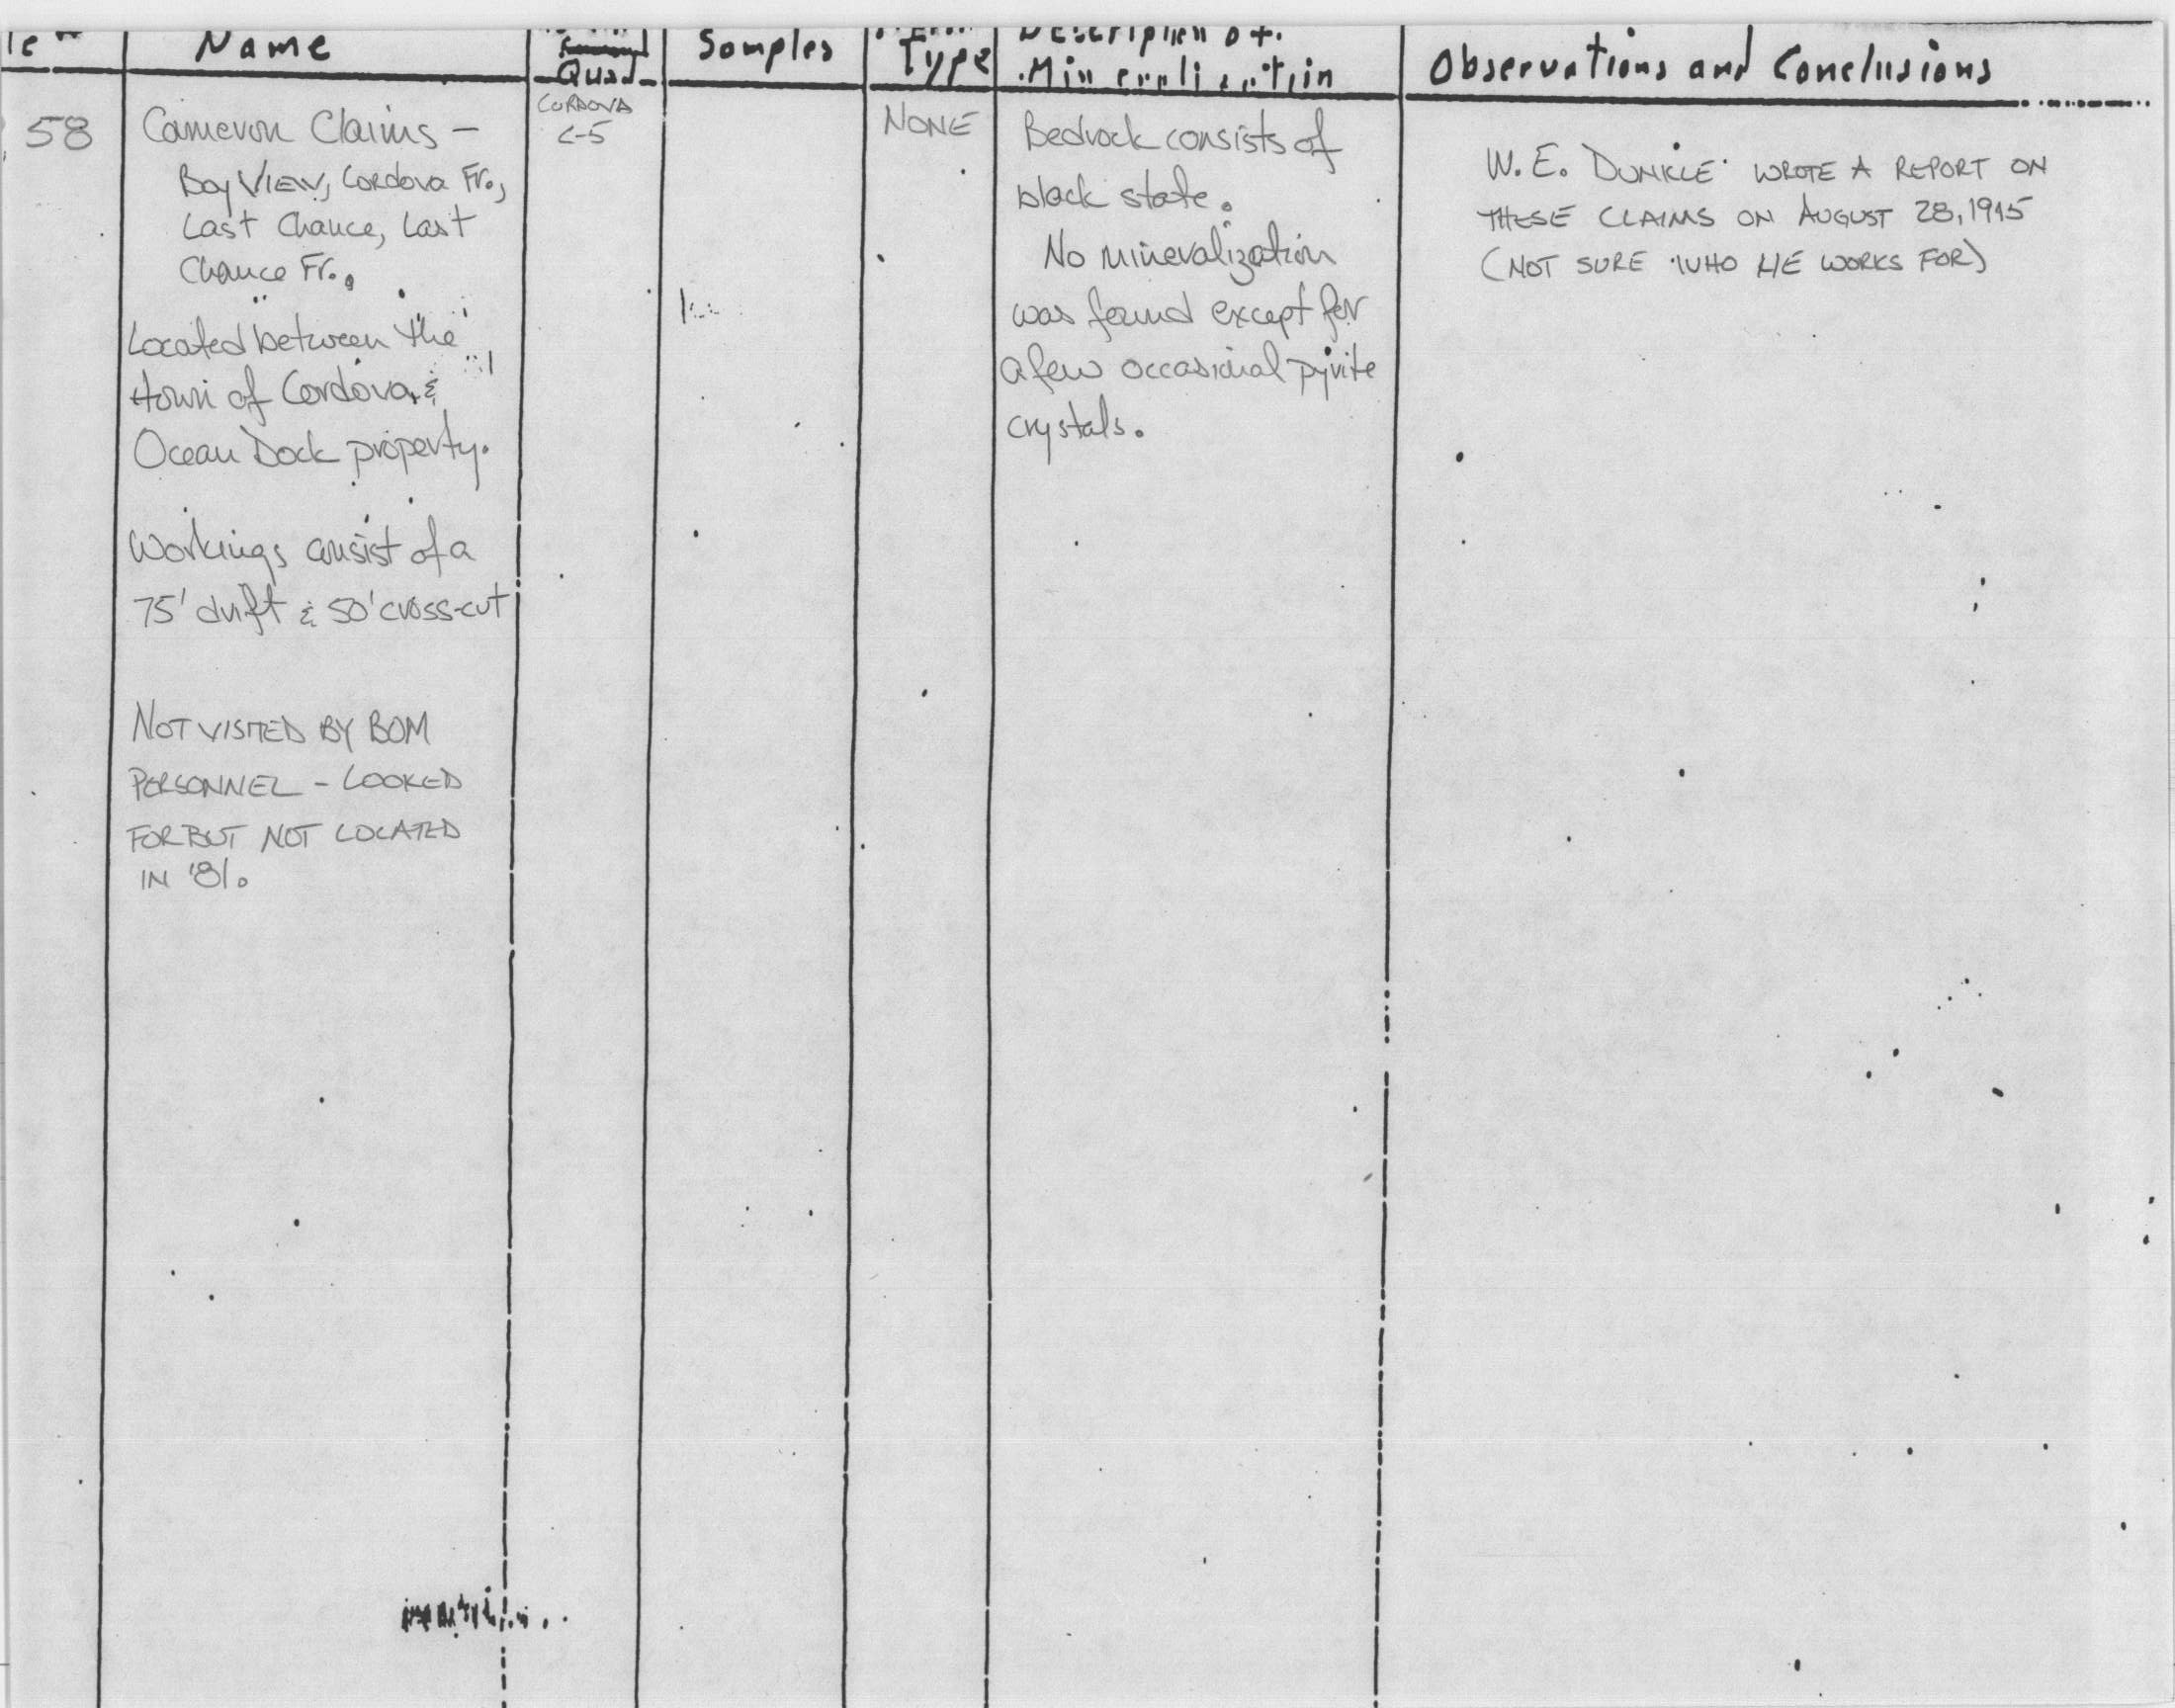 Name
Quad
Samples
Type
Description of
Mineralization
Observations and Conclusions
58
Cameron Claims -
Bay View, Cordova Fr.,
Last Chance, Last
Chance Fr.,
Located between the
town of Cordova &
Ocean Dock property.
Workings consist of a
75' drift & 50' cross-cut
NOT VISITED BY BOM
PERSONNEL - LOOKED
FOR BUT NOT LOCATED
IN '81.
CORDOVA
C-5
NONE
Bedrock consists of
black slate.
No mineralization
was found except for
a few occasional pyrite
crystals.
W. E. DUNKLE WROTE A REPORT ON
THESE CLAIMS ON AUGUST 28, 1915
(NOT SURE WHO HE WORKS FOR)